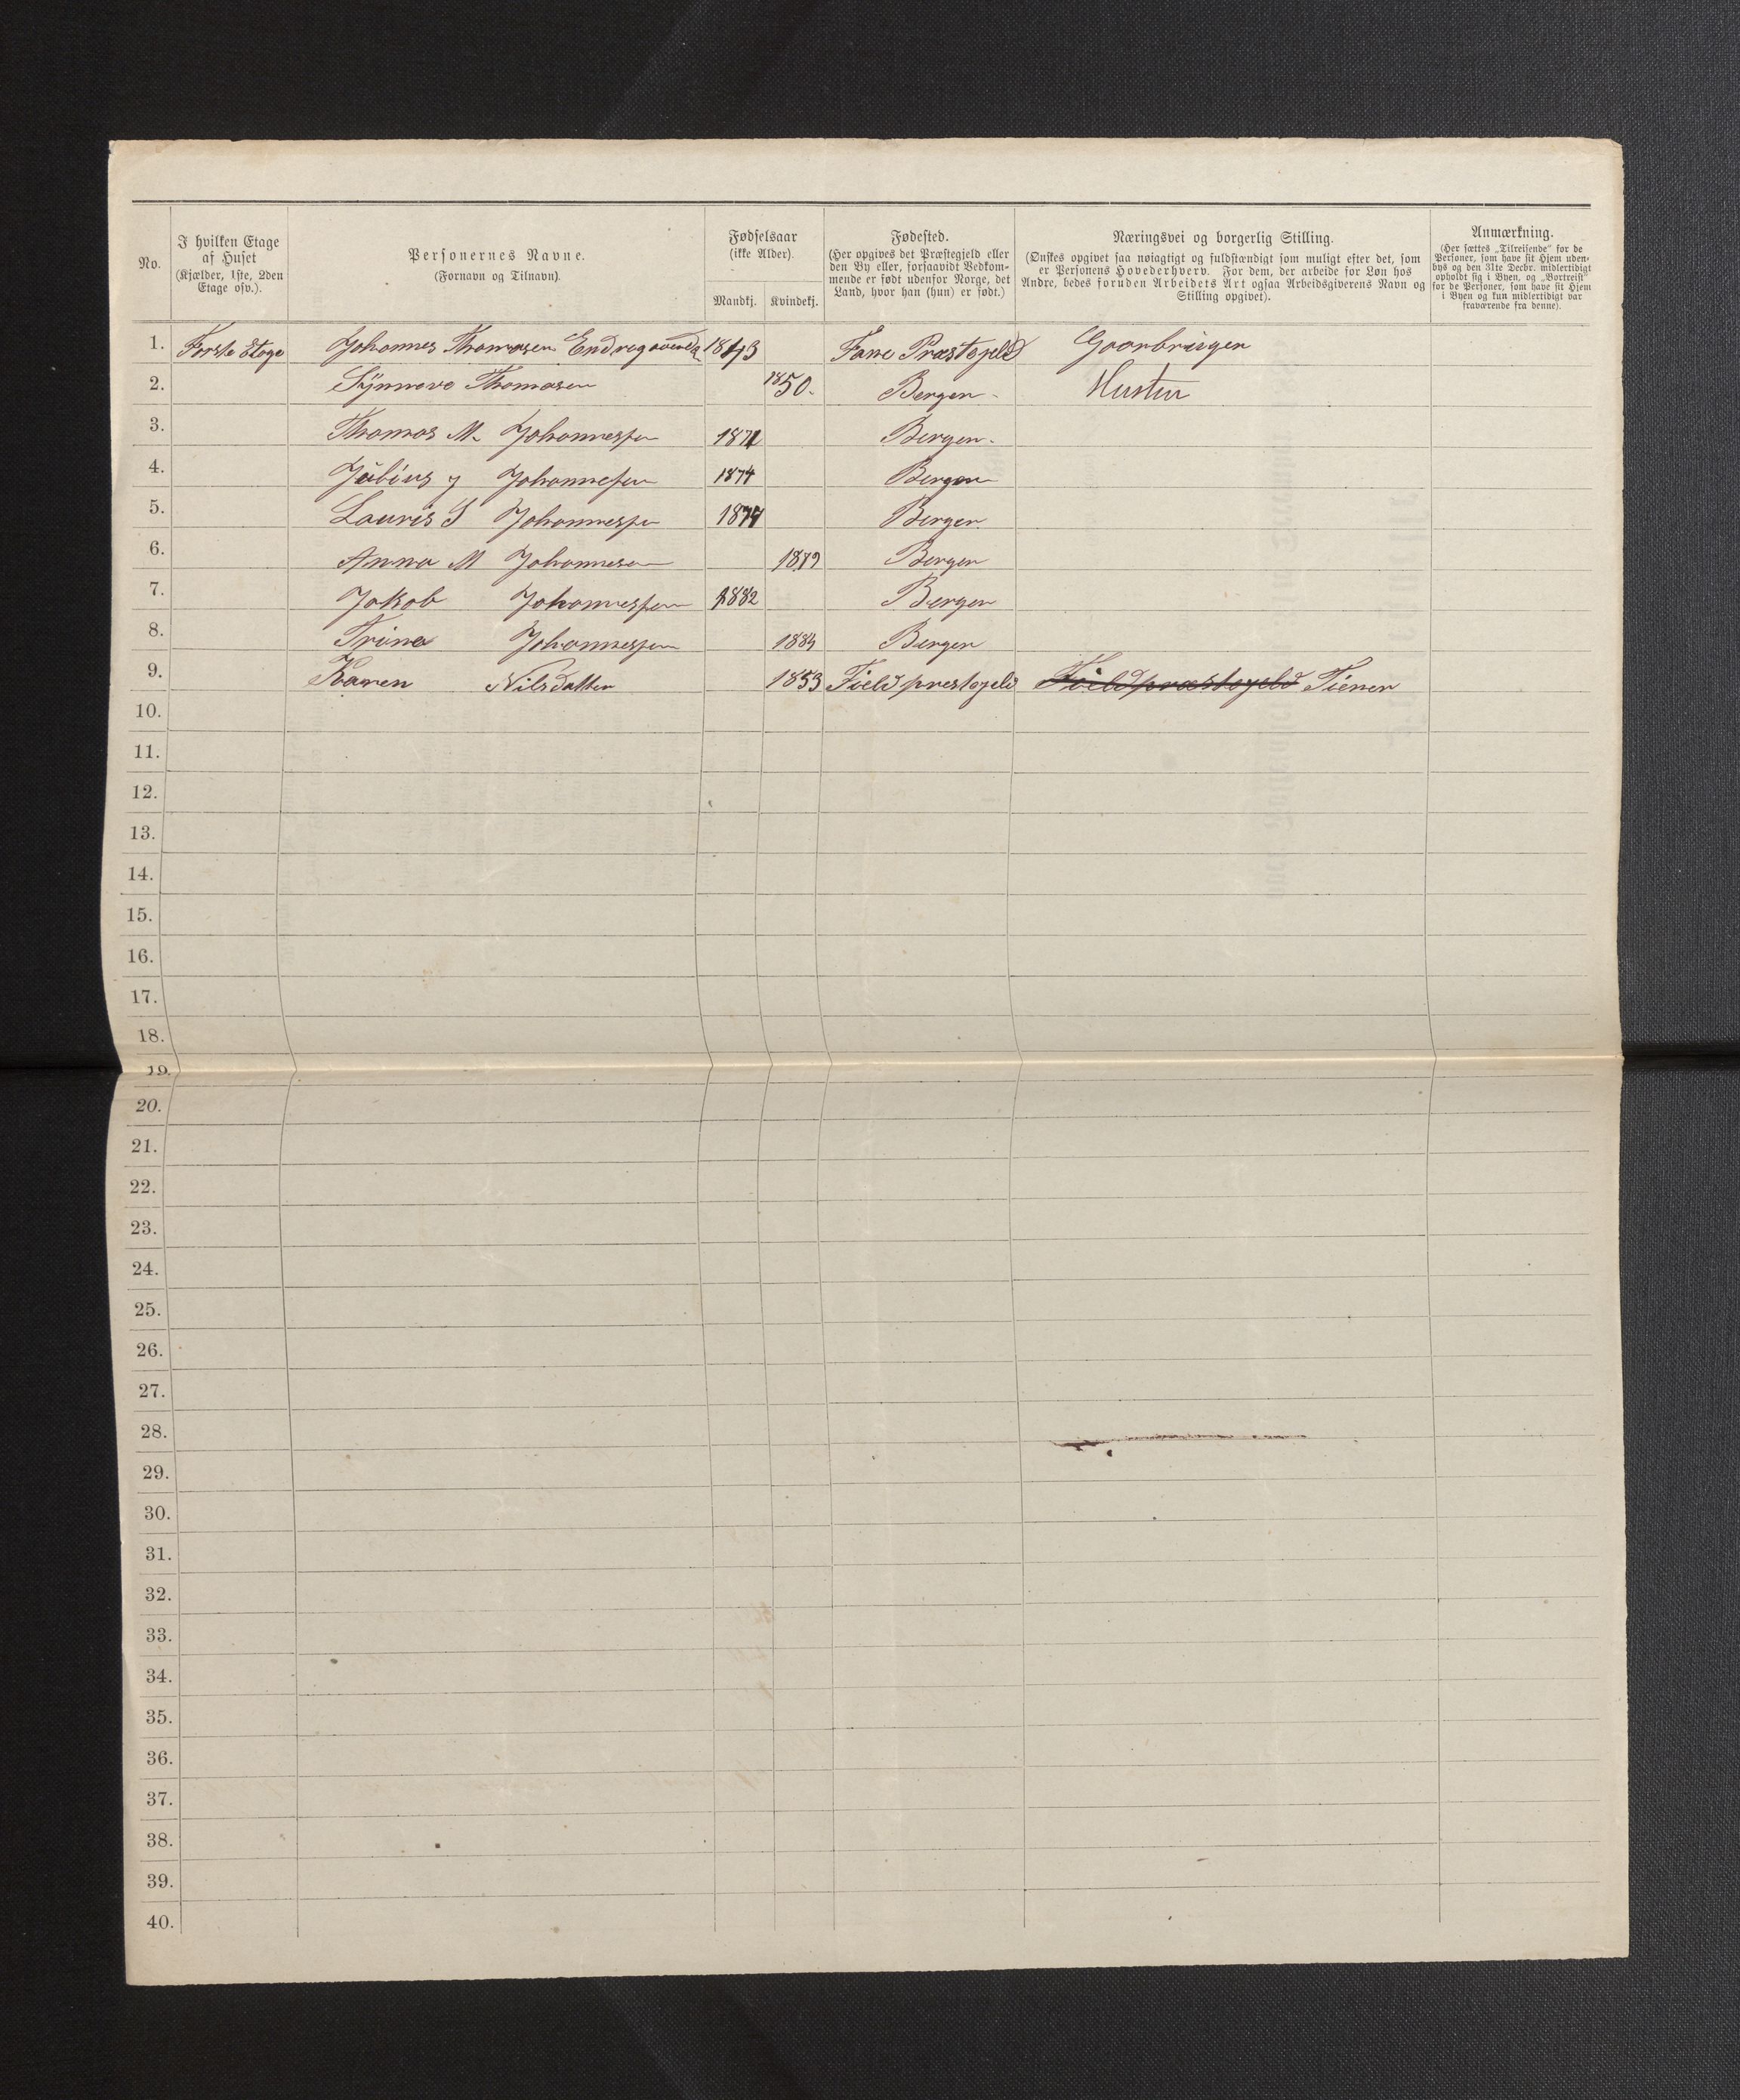 No.
I hvilken Etage
af Huset
(Kjælder, 1ste, 2den
Etage osv.).
Personernes Navne.
(Fornavn og Tilnavn).
Fødselsaar
(ikke Alder).
Mandkj. Kvindekj.
Fødested.
(Her opgives det Præstegjeld eller
den By eller, forsaavidt Vedkom-
mende er født udenfor Norge, det
Land, hvor han (hun) er født.)
Næringsvei og borgerlig Stilling.
(Ønskes opgivet saa nøiagtigt og fuldstændigt som muligt efter det, som
er Personens Hovederhverv. For dem, der arbeide for Løn hos
Andre, bedes foruden Arbeidets Art ogsaa Arbeidsgiverens Navn og
Stilling opgivet).
Anmærkning.
(Her sættes „Tilreisende“ for de
Personer, som have sit Hjem uden-
bys og den 31te Decbr. midlertidigt
opholdt sig i Byen, og „Bortreist“
for de Personer, som have sit Hjem
i Byen og kun midlertidigt var
fraværende fra denne).
1. Forste Etage Johannes Thomasen 1843 Fane Præstegjeld Gaarbruger
2. Synneve Thomasen 1850. Bergen. Hustru
3. Thomas M. Johannessen 1871 Bergen.
4. Johannessen 1874 Bergen
5. Lauris S Johannessen Bergen
6. Anna M Johannesen 1879 Bergen
7. Jakob Johannessen 1882 Bergen
8. Trina Johannessen Bergen
9. Karen Nilsdatter 1853 Field prestegjeld Fieldpræstegjeld Tiener
10.
11.
12.
13.
14.
15.
16.
17.
18.
19.
20.
21.
22.
23.
24.
25.
26.
27.
28.
29.
30.
31.
32.
33.
34.
35.
36.
37.
38.
39.
40.